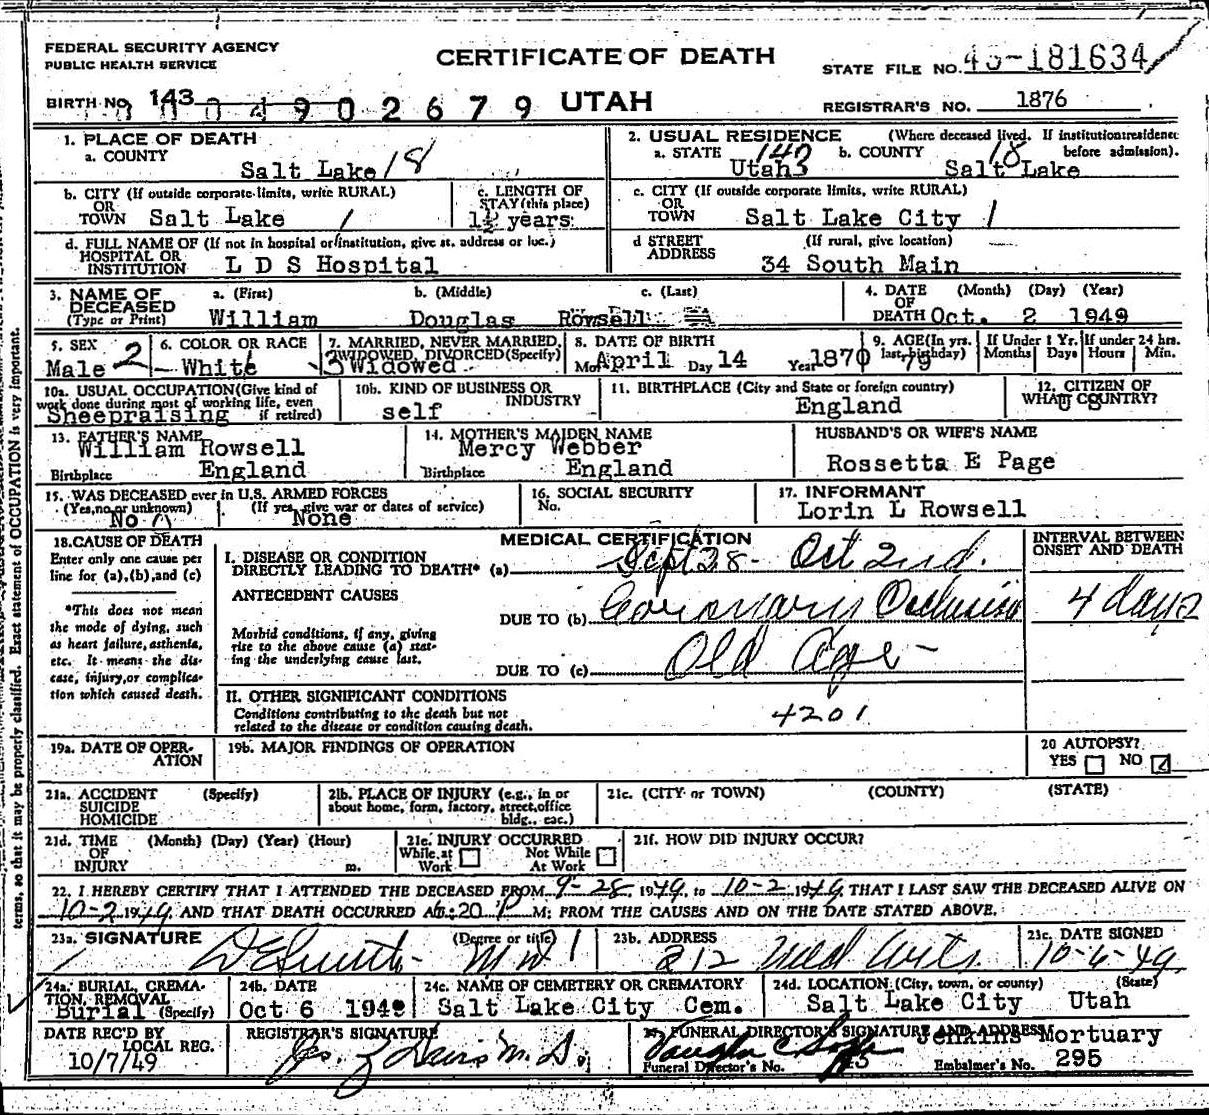 FEDERAL SECURITY AGENCY
PUBLIC HEALTH SERVICE
CERTIFICATE OF DEATH
STATE FILE NO. 49-181634
BIRTH NO. 143 0 0 4 9 0 2 6 7 9 UTAH
REGISTRAR'S NO. 1876
1. PLACE OF DEATH
a. COUNTY
Salt Lake 18
2. USUAL RESIDENCE (Where deceased lived. If institution:residence before admission).
a. STATE 143 b. COUNTY 18
Utah Salt Lake
b. CITY (If outside corporate limits, write RURAL)
OR
TOWN Salt Lake 1
c. LENGTH OF
STAY (this place)
1½ years
c. CITY (If outside corporate limits, write RURAL)
OR
TOWN Salt Lake City 1
d. FULL NAME OF (If not in hospital or institution, give st. address or loc.)
HOSPITAL OR
INSTITUTION L D S Hospital
d STREET (If rural, give location)
ADDRESS
34 South Main
3. NAME OF
DECEASED
(Type or Print)
a. (First) b. (Middle) c. (Last)
William Douglas Rowsell
4. DATE (Month) (Day) (Year)
OF
DEATH Oct. 2 1949
5. SEX
Male 2
6. COLOR OR RACE
White
7. MARRIED, NEVER MARRIED,
WIDOWED, DIVORCED (Specify)
3 Widowed
8. DATE OF BIRTH
Mo April Day 14 Year 1870
9. AGE (In yrs. last birthday)
79
If Under 1 Yr.
Months Days
If under 24 hrs.
Hours Min.
10a. USUAL OCCUPATION (Give kind of
work done during most of working life, even
if retired)
Sheepraising
10b. KIND OF BUSINESS OR
INDUSTRY
self
11. BIRTHPLACE (City and State or foreign country)
England
12. CITIZEN OF
WHAT COUNTRY?
U S
13. FATHER'S NAME
William Rowsell
Birthplace England
14. MOTHER'S MAIDEN NAME
Mercy Webber
Birthplace England
HUSBAND'S OR WIFE'S NAME
Rossetta E Page
15. WAS DECEASED ever in U.S. ARMED FORCES
(Yes, no or unknown) (If yes, give war or dates of service)
No None
16. SOCIAL SECURITY
No.
17. INFORMANT
Lorin L Rowsell
18. CAUSE OF DEATH
Enter only one cause per
line for (a), (b), and (c)
*This does not mean
the mode of dying, such
as heart failure, asthenia,
etc. It means the dis-
ease, injury, or complica-
tion which caused death.
MEDICAL CERTIFICATION
I. DISEASE OR CONDITION
DIRECTLY LEADING TO DEATH* (a) Sept 28 - Oct 2nd.
ANTECEDENT CAUSES
DUE TO (b) Coronary Occlusion
Morbid conditions, if any, giving
rise to the above cause (a) stat-
ing the underlying cause last.
DUE TO (c) Old Age -
INTERVAL BETWEEN
ONSET AND DEATH
4 days
II. OTHER SIGNIFICANT CONDITIONS
Conditions contributing to the death but not
related to the disease or condition causing death.
4201
19a. DATE OF OPER-
ATION
19b. MAJOR FINDINGS OF OPERATION
20 AUTOPSY?
YES NO
21a. ACCIDENT (Specify)
SUICIDE
HOMICIDE
21b. PLACE OF INJURY (e.g., in or
about home, form, factory, street, office
bldg., eac.)
21c. (CITY or TOWN) (COUNTY) (STATE)
21d. TIME (Month) (Day) (Year) (Hour)
OF
INJURY m.
21e. INJURY OCCURRED
While at Work Not While At Work
21f. HOW DID INJURY OCCUR?
22. I HEREBY CERTIFY THAT I ATTENDED THE DECEASED FROM 9-28 1949, to 10-2 1949 THAT I LAST SAW THE DECEASED ALIVE ON
10-2 1949, AND THAT DEATH OCCURRED AT 6:20 P M; FROM THE CAUSES AND ON THE DATE STATED ABOVE.
23a. SIGNATURE (Degree or title)
D E Smith M D 1
23b. ADDRESS
212 Med Arts
23c. DATE SIGNED
10-6-49
24a. BURIAL, CREMA-
TION, REMOVAL
Burial (Specify)
24b. DATE
Oct 6 1949
24c. NAME OF CEMETERY OR CREMATORY
Salt Lake City Cem.
24d. LOCATION (City, town, or county) (State)
Salt Lake City Utah
DATE REC'D BY
LOCAL REG.
10/7/49
REGISTRAR'S SIGNATURE
M. D.
25 FUNERAL DIRECTOR'S SIGNATURE AND ADDRESS
Jenkins Mortuary
Funeral Director's No.
Embalmer's No. 295
terms, so that it may be properly classified. Exact statement of OCCUPATION is very important.